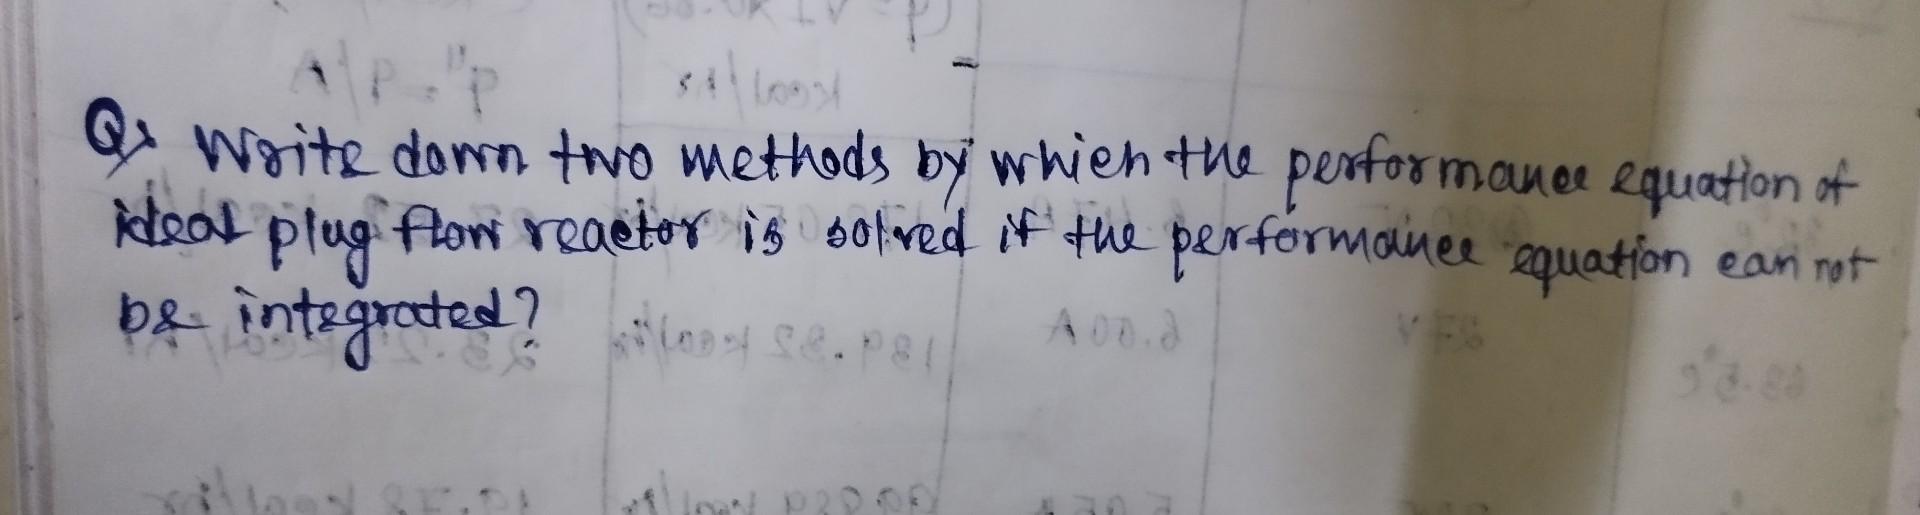 Q: Write down two methods by which the performance equation of
ideal plug flow reactor is solved if the performance equation can not
be integrated?